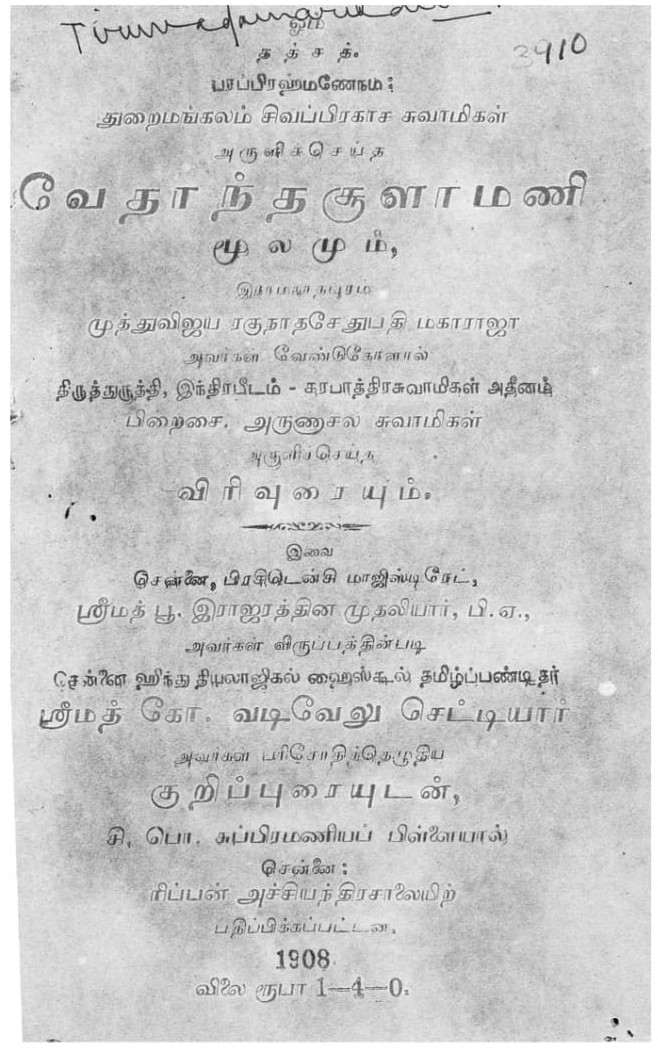 3910
ஓம்
தத்சத்.
பரப்பிரஹ்மணேநம:
துறைமங்கலம் சிவப்பிரகாச சுவாமிகள்
அருளிச்செய்த
வேதாந்தசூளாமணி
மூலமும்,
இராமநாதபுரம்
முத்துவிஜய ரகுநாதசேதுபதி மகாராஜா
அவர்கள் வேண்டுகோளால்
திருத்துருத்தி, இந்திரபீடம் - கரபாத்திரசுவாமிகள் அதீனம்
பிறைசை. அருணாசல சுவாமிகள்
அருளிச்செய்த
விரிவுரையும்.
இவை
சென்னை, பிரசிடென்சி மாஜிஸ்டிரேட்,
ஸ்ரீமத் பூ. இராஜரத்தின முதலியார், பி.ஏ.,
அவர்கள் விருப்பத்தின்படி
சென்னை ஹிந்து தியலாஜிகல் ஹைஸ்கூல் தமிழ்ப்பண்டிதர்
ஸ்ரீமத் கோ. வடிவேலு செட்டியார்
அவர்கள் பரிசோதித்தெழுதிய
குறிப்புரையுடன்,
சி. பொ. சுப்பிரமணியப் பிள்ளையால்
சென்னை:
ரிப்பன் அச்சியந்திரசாலையிற்
பதிப்பிக்கப்பட்டன.
1908
விலை ரூபா 1—4—0.